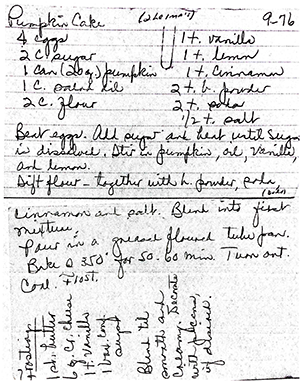 Pumpkin Cake 9-76
4 eggs 1 t. vanilla
2 C. sugar 1 t. lemon
1 Can (20 oz) pumpkin 1 t. Cinnamon
1 C. salad oil 2 t. b. powder
2 C. flour 2 t. soda
1/2 t. salt
Beat eggs. Add sugar and beat until sugar
is dissolved. Stir in pumpkin, oil, vanilla
and lemon.
Sift flour - together with b. powder, soda
(over)
Cinnamon and salt. Blend into first
mixture.
Pour in a greased floured tube pan.
Bake @ 350° for 50-60 min. Turn out.
Cool. Frost.
Frosting
1 st. butter
6 oz Cr. cheese
1 t. vanilla
1 box conf.
sugar
Blend til
smooth and
creamy. Decorate
with pecans
if desired.